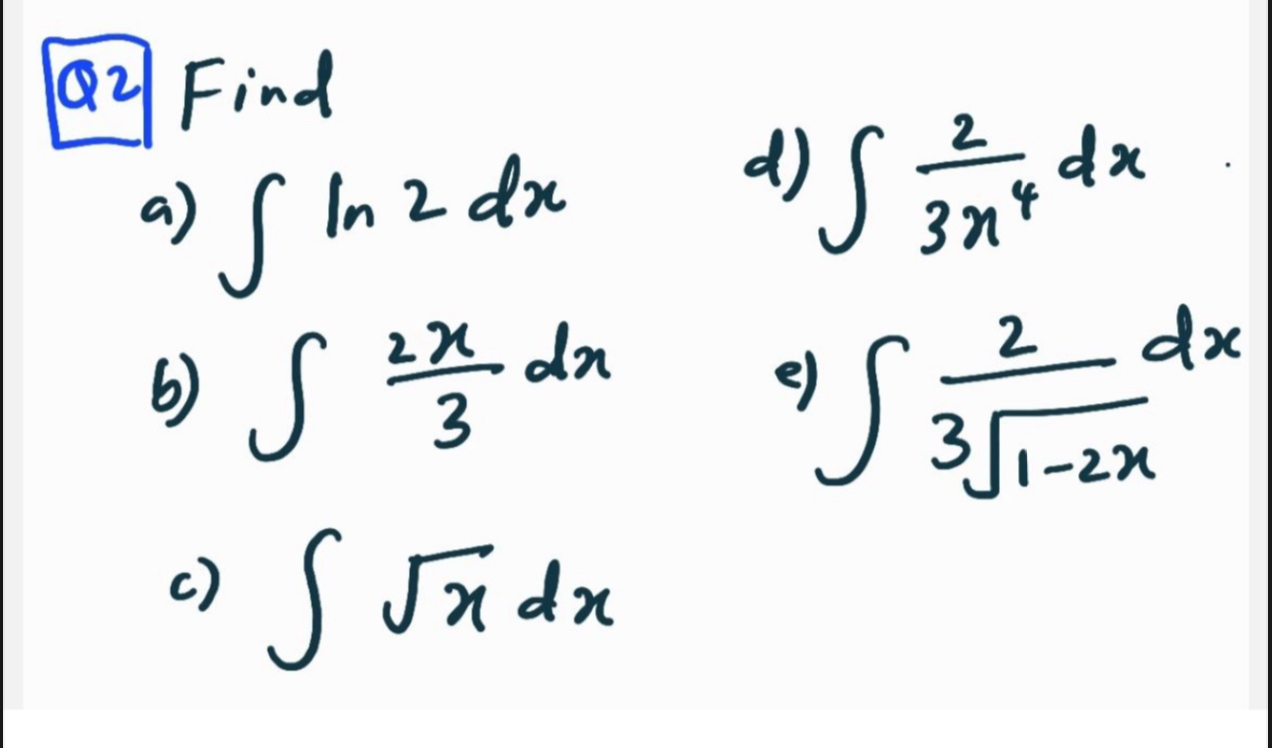 Q2 Find
a) ∫ ln 2 dx
b) ∫ 2x/3 dx
c) ∫ √x dx
d) ∫ 2/(3x⁴) dx
e) ∫ 2/(3√(1-2x)) dx